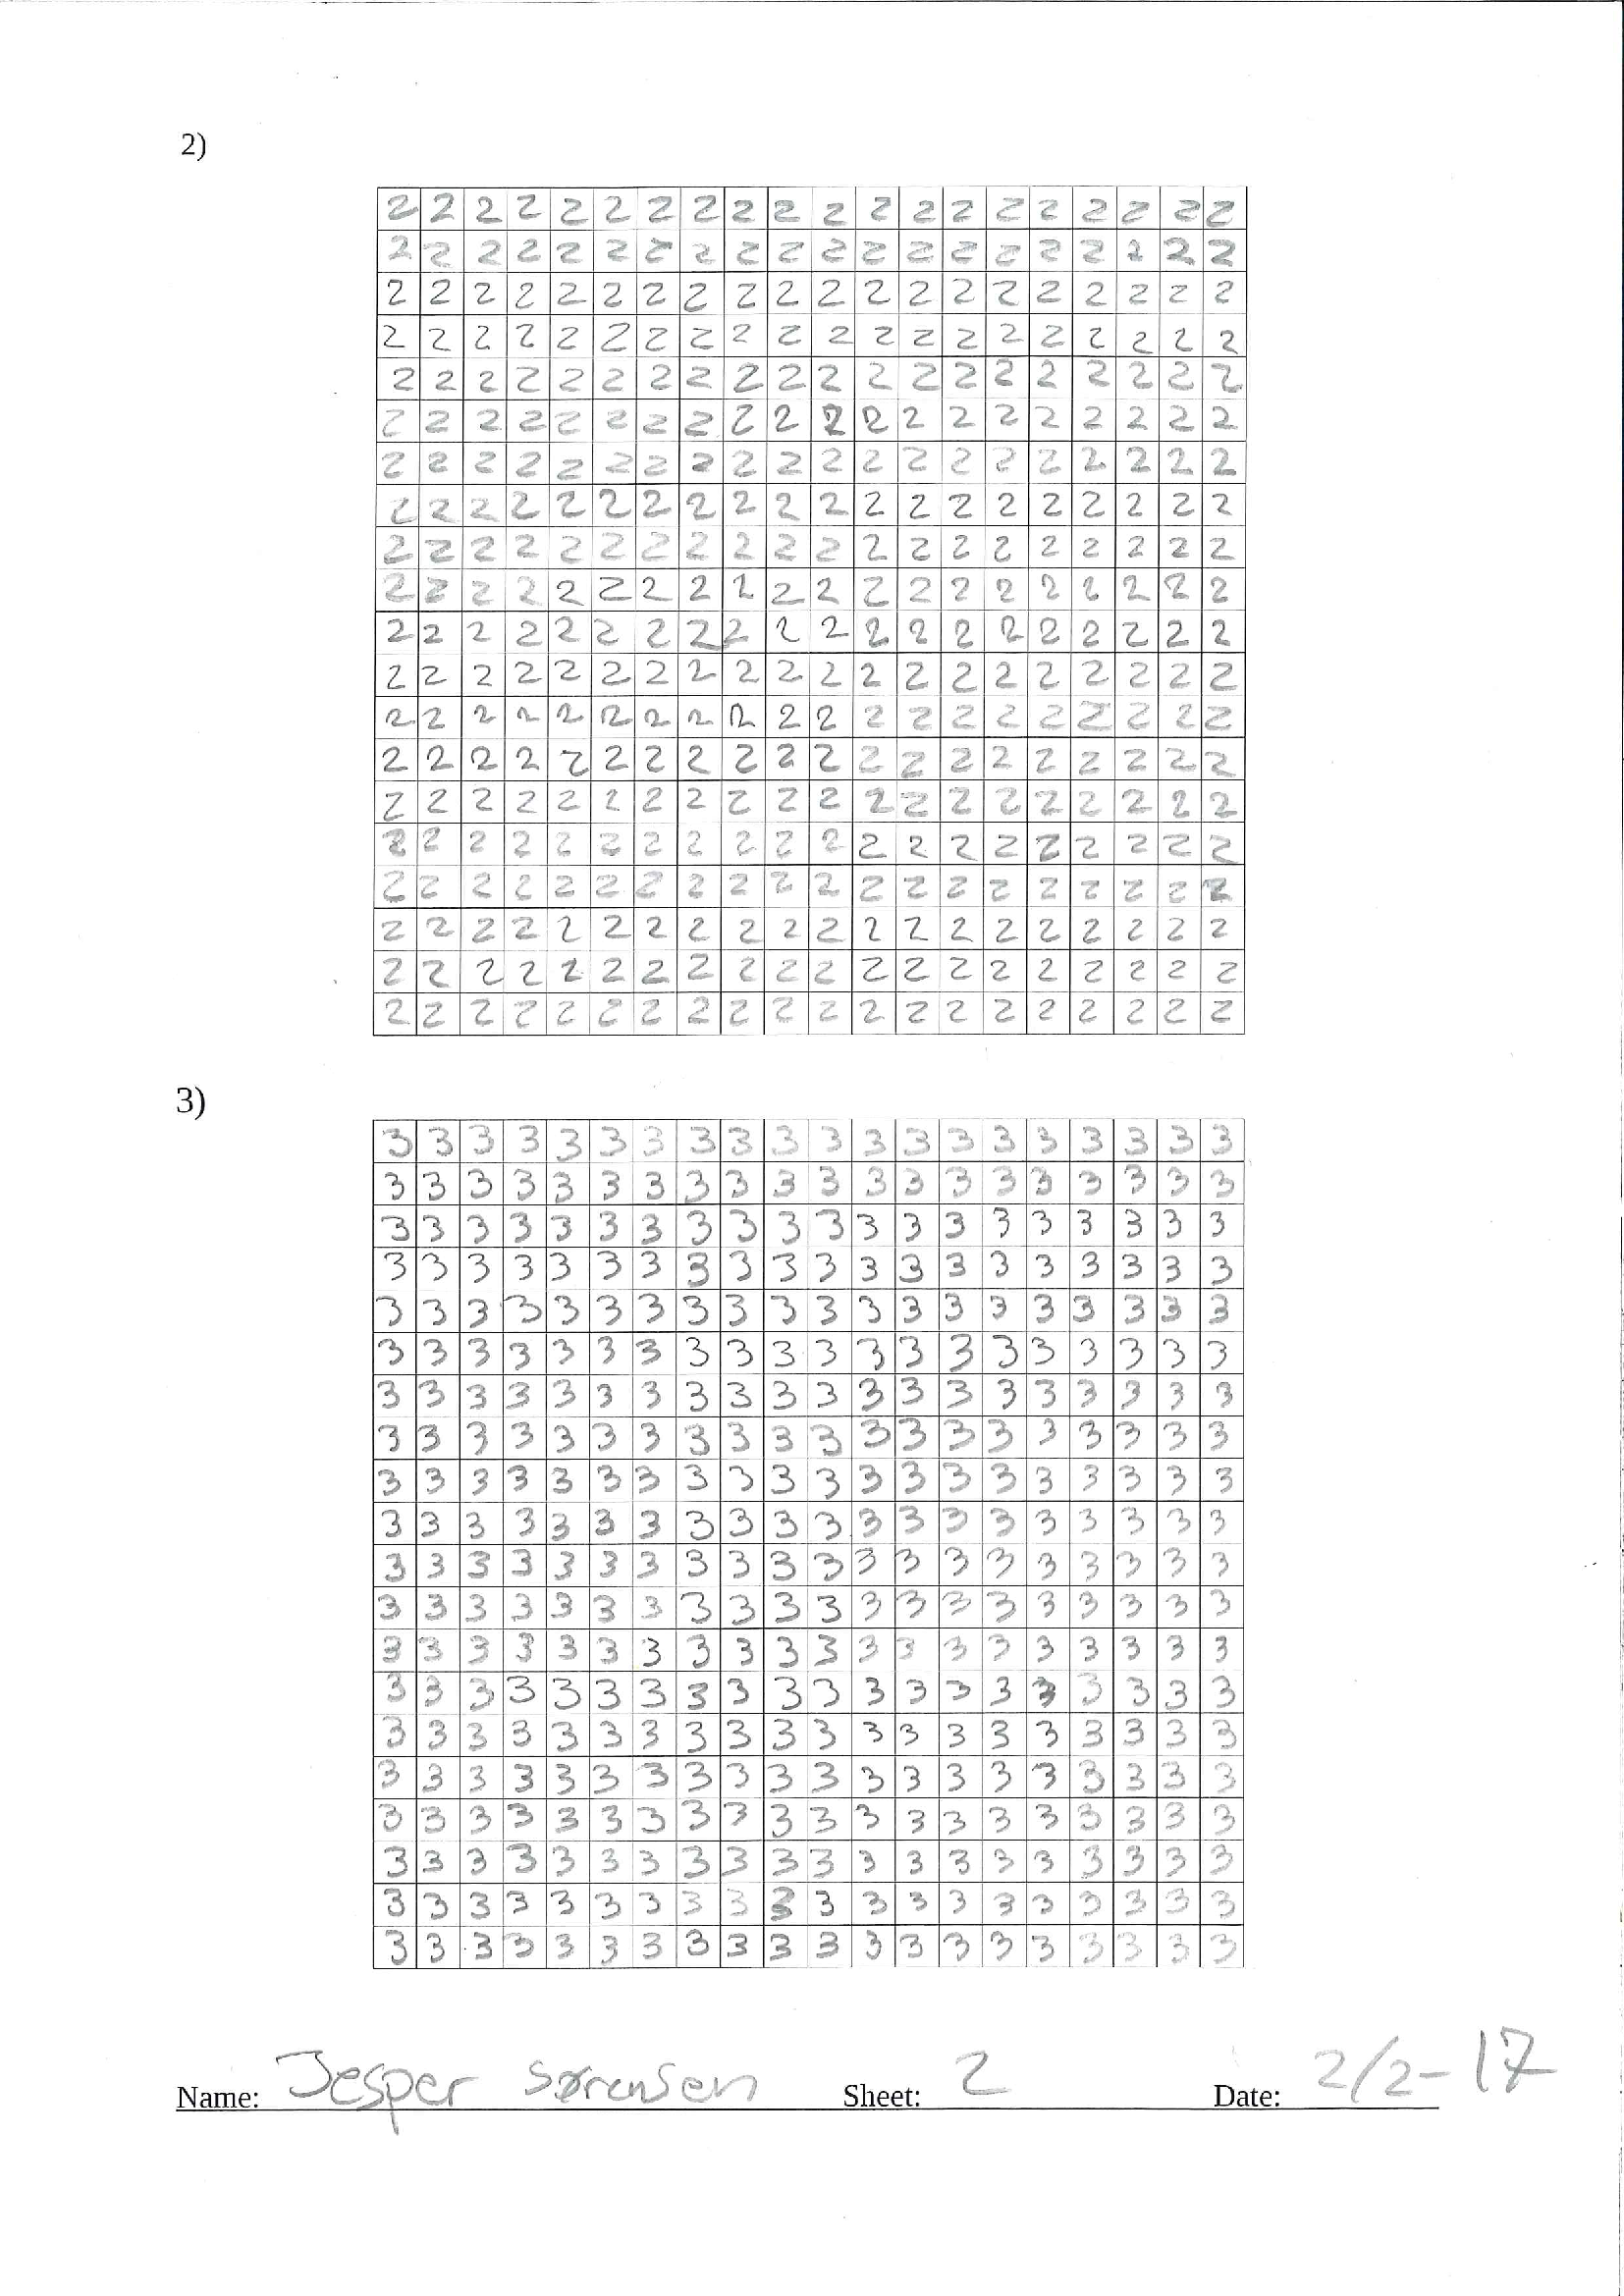 2)
2 2 2 2 2 2 2 2 2 2 2 2 2 2 2 2 2 2 2 2
2 2 2 2 2 2 2 2 2 2 2 2 2 2 2 2 2 2 2 2
2 2 2 2 2 2 2 2 2 2 2 2 2 2 2 2 2 2 2 2
2 2 2 2 2 2 2 2 2 2 2 2 2 2 2 2 2 2 2 2
2 2 2 2 2 2 2 2 2 2 2 2 2 2 2 2 2 2 2 2
2 2 2 2 2 2 2 2 2 2 2 2 2 2 2 2 2 2 2 2
2 2 2 2 2 2 2 2 2 2 2 2 2 2 2 2 2 2 2 2
2 2 2 2 2 2 2 2 2 2 2 2 2 2 2 2 2 2 2 2
2 2 2 2 2 2 2 2 2 2 2 2 2 2 2 2 2 2 2 2
2 2 2 2 2 2 2 2 2 2 2 2 2 2 2 2 2 2 2 2
2 2 2 2 2 2 2 2 2 2 2 2 2 2 2 2 2 2 2 2
2 2 2 2 2 2 2 2 2 2 2 2 2 2 2 2 2 2 2 2
2 2 2 2 2 2 2 2 2 2 2 2 2 2 2 2 2 2 2 2
2 2 2 2 2 2 2 2 2 2 2 2 2 2 2 2 2 2 2 2
2 2 2 2 2 2 2 2 2 2 2 2 2 2 2 2 2 2 2 2
2 2 2 2 2 2 2 2 2 2 2 2 2 2 2 2 2 2 2 2
2 2 2 2 2 2 2 2 2 2 2 2 2 2 2 2 2 2 2 2
2 2 2 2 2 2 2 2 2 2 2 2 2 2 2 2 2 2 2 2
2 2 2 2 2 2 2 2 2 2 2 2 2 2 2 2 2 2 2 2
2 2 2 2 2 2 2 2 2 2 2 2 2 2 2 2 2 2 2 2
3)
3 3 3 3 3 3 3 3 3 3 3 3 3 3 3 3 3 3 3 3
3 3 3 3 3 3 3 3 3 3 3 3 3 3 3 3 3 3 3 3
3 3 3 3 3 3 3 3 3 3 3 3 3 3 3 3 3 3 3 3
3 3 3 3 3 3 3 3 3 3 3 3 3 3 3 3 3 3 3 3
3 3 3 3 3 3 3 3 3 3 3 3 3 3 3 3 3 3 3 3
3 3 3 3 3 3 3 3 3 3 3 3 3 3 3 3 3 3 3 3
3 3 3 3 3 3 3 3 3 3 3 3 3 3 3 3 3 3 3 3
3 3 3 3 3 3 3 3 3 3 3 3 3 3 3 3 3 3 3 3
3 3 3 3 3 3 3 3 3 3 3 3 3 3 3 3 3 3 3 3
3 3 3 3 3 3 3 3 3 3 3 3 3 3 3 3 3 3 3 3
3 3 3 3 3 3 3 3 3 3 3 3 3 3 3 3 3 3 3 3
3 3 3 3 3 3 3 3 3 3 3 3 3 3 3 3 3 3 3 3
3 3 3 3 3 3 3 3 3 3 3 3 3 3 3 3 3 3 3 3
3 3 3 3 3 3 3 3 3 3 3 3 3 3 3 3 3 3 3 3
3 3 3 3 3 3 3 3 3 3 3 3 3 3 3 3 3 3 3 3
3 3 3 3 3 3 3 3 3 3 3 3 3 3 3 3 3 3 3 3
3 3 3 3 3 3 3 3 3 3 3 3 3 3 3 3 3 3 3 3
3 3 3 3 3 3 3 3 3 3 3 3 3 3 3 3 3 3 3 3
3 3 3 3 3 3 3 3 3 3 3 3 3 3 3 3 3 3 3 3
3 3 3 3 3 3 3 3 3 3 3 3 3 3 3 3 3 3 3 3
Name: Jesper Sørensen Sheet: 2 Date: 2/2-17